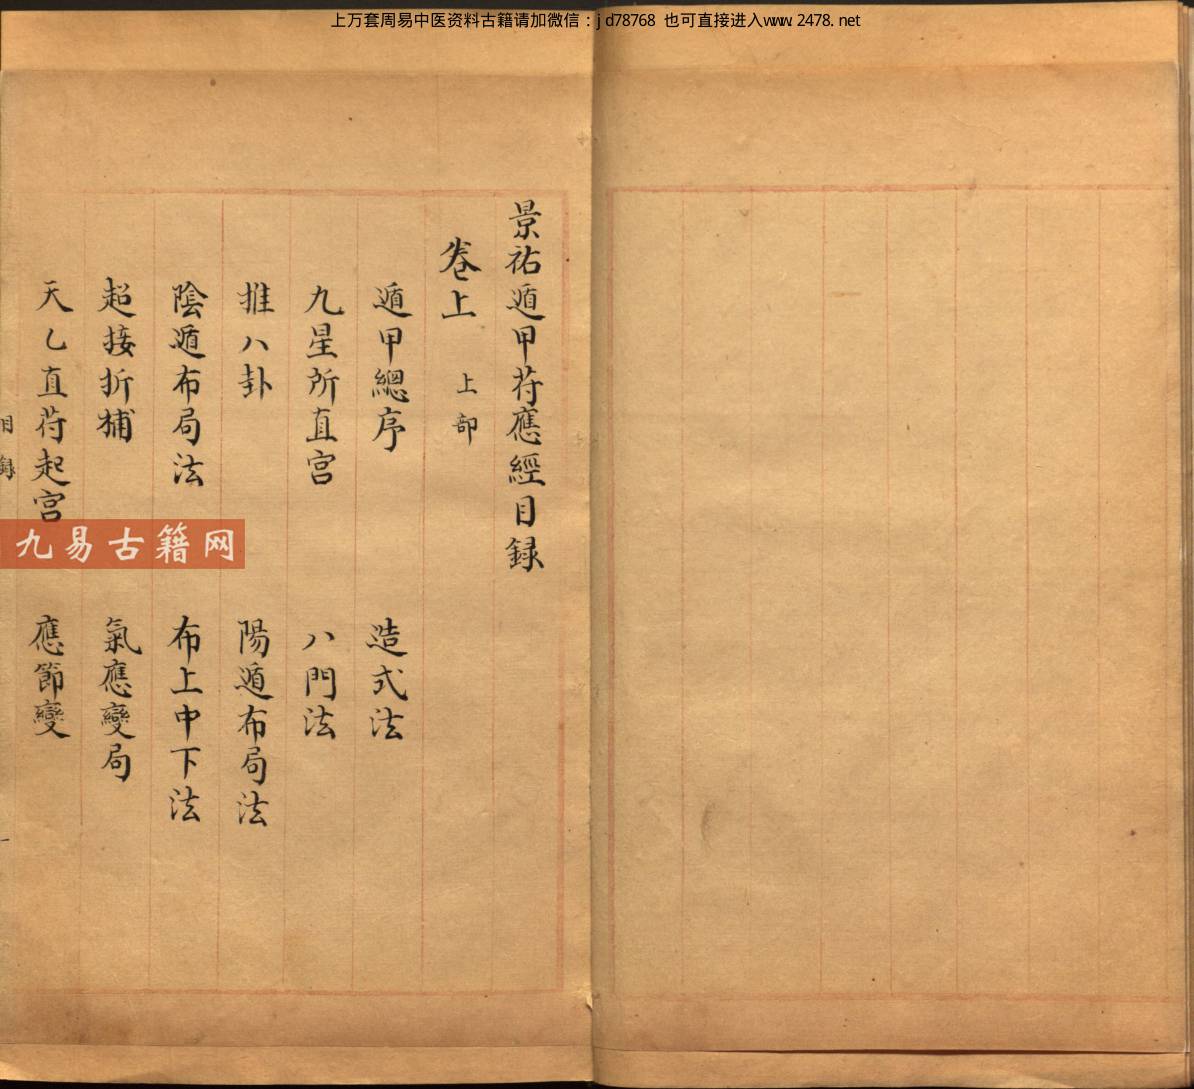 上万套周易中医资料古籍请加微信：jd78768 也可直接进入www.2478.net
景祐遁甲苻應經目録
卷上 上部
遁甲總序 造式法
九星所直宫 八門法
推八卦 陽遁布局法
陰遁布局法 布上中下法
超接折補 氣應變局
天乙直苻起宫 應節變
目録
九易古籍网